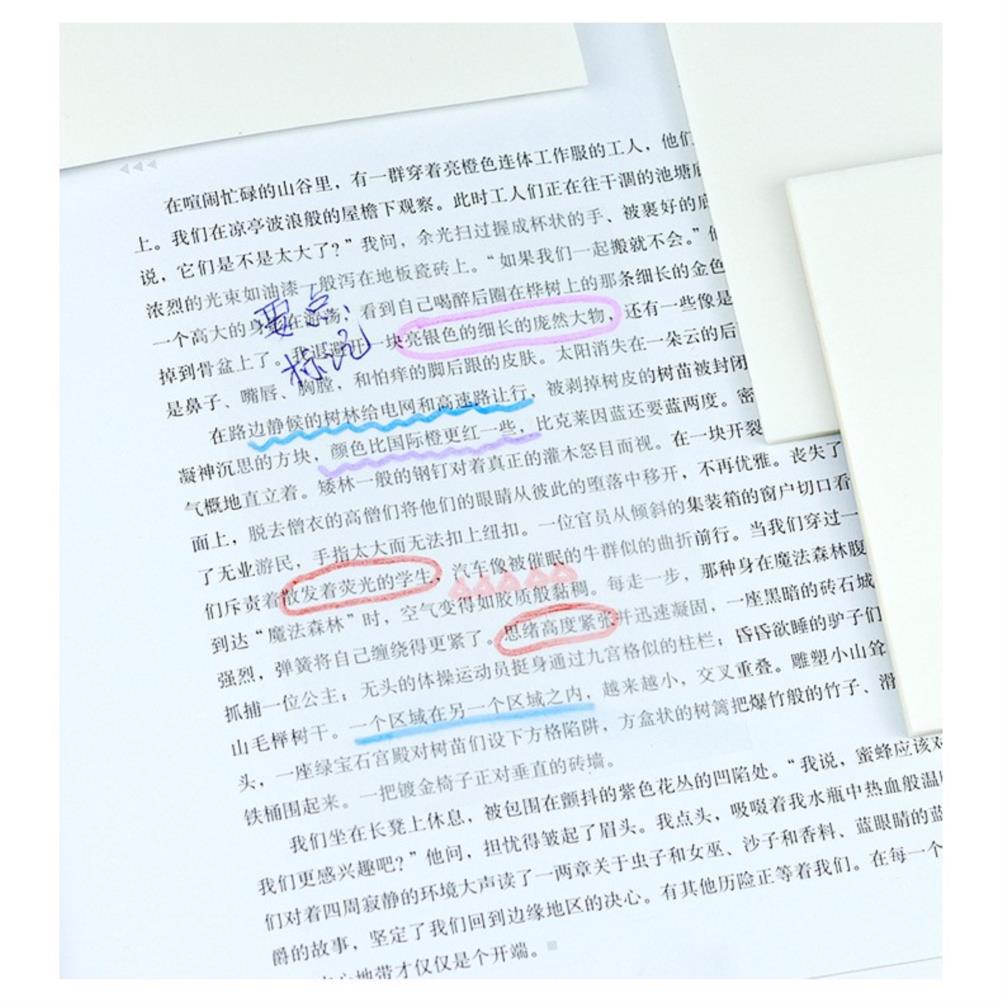 在喧闹忙碌的山谷里，有一群穿着亮橙色连体工作服的工人，他们
上。我们在凉亭波浪般的屋檐下观察。此时工人们正在往干涸的池塘底
说，它们是不是太大了？”我问，余光扫过握成杯状的手、被裹好的底
浓烈的光束如油漆一般泻在地板瓷砖上。“如果我们一起搬就不会。”他
要点：
一个高大的身 在游荡；看到自己喝醉后圈在桦树上的那条细长的金色
标记
掉到骨盆上了。我迟 开一块亮银色的细长的庞然大物，还有一些像是
是鼻子、嘴唇、胸膛，和怕痒的脚后跟的皮肤。太阳消失在一朵云的后
在路边静候的树林给电网和高速路让行，被剥掉树皮的树苗被封闭
凝神沉思的方块，颜色比国际橙更红一些，比克莱因蓝还要蓝两度。密
气概地直立着。矮林一般的钢钉对着真正的灌木怒目而视。在一块开裂
面上，脱去僧衣的高僧们将他们的眼睛从彼此的堕落中移开，不再优雅。丧失了
了无业游民，手指太大而无法扣上纽扣。一位官员从倾斜的集装箱的窗户切口看
们斥责着散发着荧光的学生，汽车像被催眠的牛群似的曲折前行。当我们穿过一
到达“魔法森林”时，空气变得如胶质般黏稠。每走一步，那种身在魔法森林腹
强烈，弹簧将自己缠绕得更紧了。思绪高度紧张并迅速凝固，一座黑暗的砖石城
抓捕一位公主；无头的体操运动员挺身通过九宫格似的柱栏；昏昏欲睡的驴子们
山毛榉树干。一个区域在另一个区域之内，越来越小，交叉重叠。雕塑小山耸
头，一座绿宝石宫殿对树苗们设下方格陷阱，方盒状的树篱把爆竹般的竹子、滑
铁桶围起来。一把镀金椅子正对垂直的砖墙。
我们坐在长凳上休息，被包围在颤抖的紫色花丛的凹陷处。“我说，蜜蜂应该对
我们更感兴趣吧？”他问，担忧得皱起了眉头。我点头，吸啜着我水瓶中热血般温
们对着四周寂静的环境大声读了一两章关于虫子和女巫、沙子和香料、蓝眼睛的蓝
爵的故事，坚定了我们回到边缘地区的决心。有其他历险正等着我们。在每一个
心地带才仅仅是个开端。